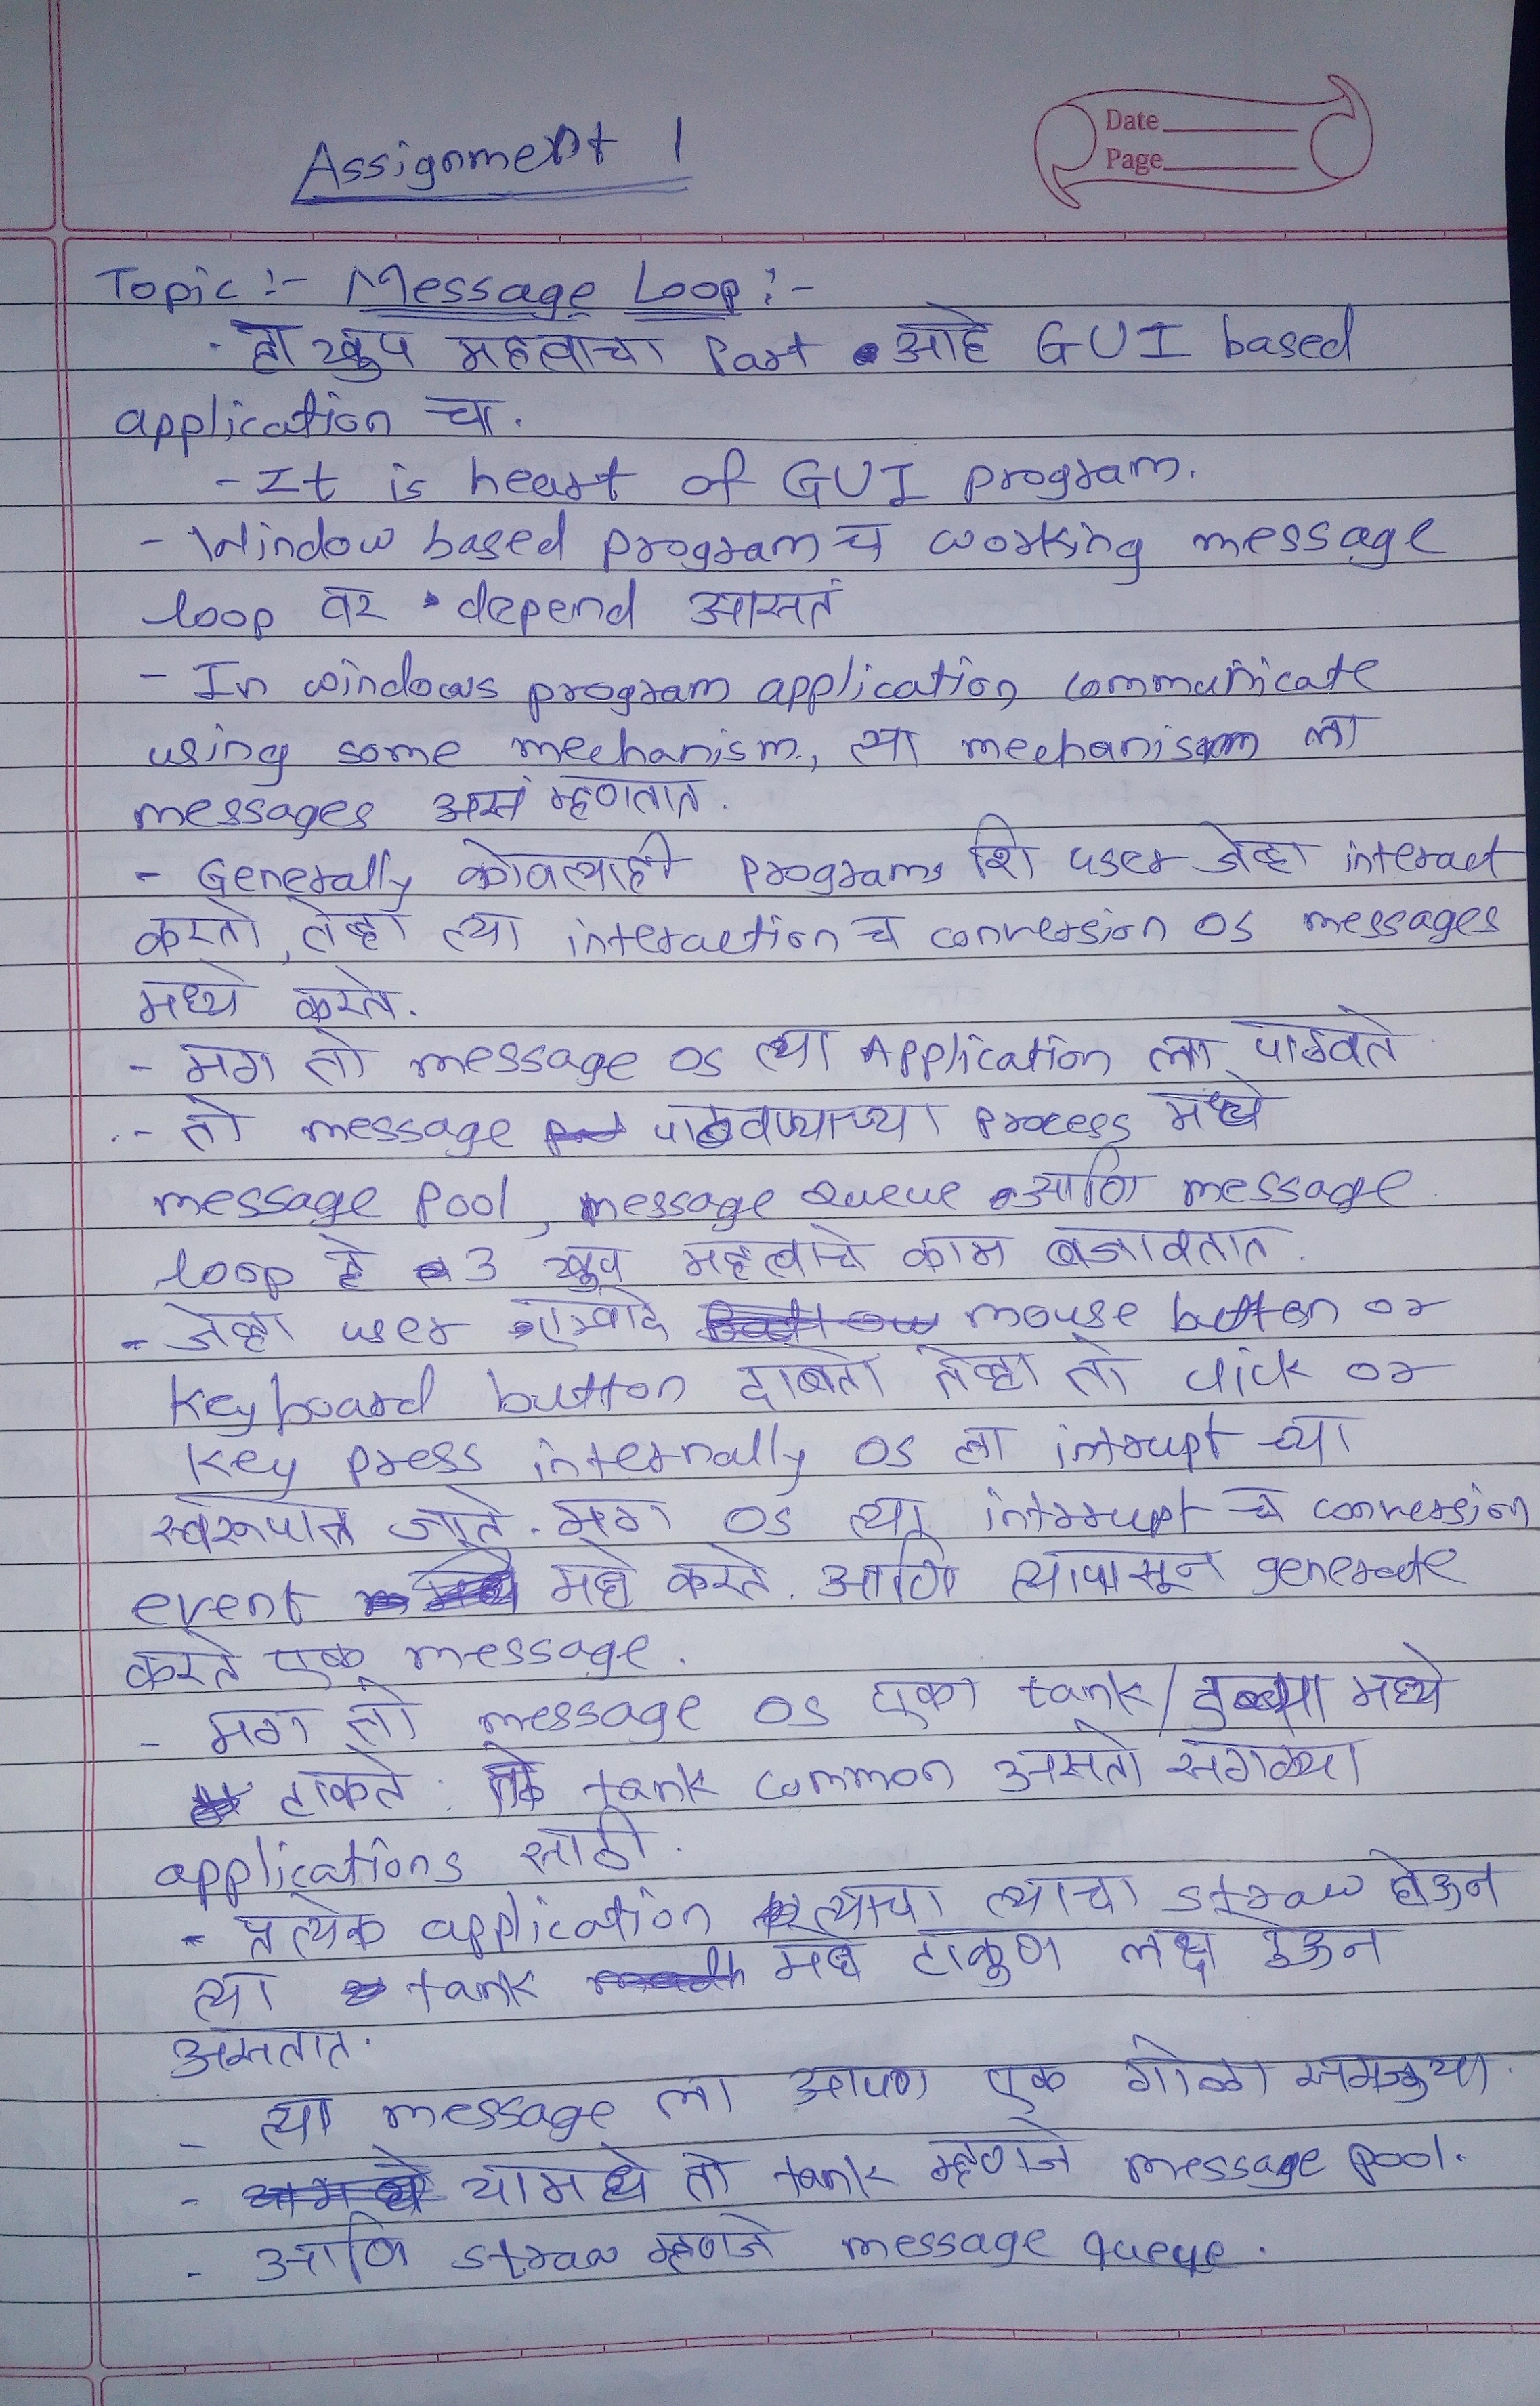 Assignment 1
Date
Page
Topic :- Message Loop :-
- हा खुप महत्वाचा Part आहे GUI based
application चा.
- It is heart of GUI program.
- Window based program च working message
loop वर depend आसतं
- In windows program application communicate
using some mechanism, त्या mechanism ला
messages असं म्हणतात.
- Generally कोणत्याही program शि user जेव्हा interact
करतो, तेव्हा त्या interaction च conversion OS messages
मध्ये करते.
- मग तो message OS त्या Application ला पाठवते
- तो message पाठवण्याच्या process मध्ये
message Pool, message Queue आणि message
loop हे 3 खुप महत्वाचे काम बजावतात.
- जेव्हा user एखादे mouse button or
keyboard button दाबतो तेव्हा तो click or
key press internally OS ला intrupt च्या
स्वरूपात जाते. मग OS त्या intrrupt च conversion
event मधे करते. आणि त्यापासून generate
करते एक message.
- मग तो message OS एका tank/डब्ब्या मध्ये
टाकते. तो tank common असतो सगळ्या
applications साठी.
- प्रत्येक application त्याचा त्याचा straw घेऊन
त्या tank मधे टाकुण लक्ष ठेऊन
असतात.
- त्या message ला आपण एक गोळा समजुया.
- यामधे तो tank म्हणजे message pool.
- आणि straw म्हणजे message queue.